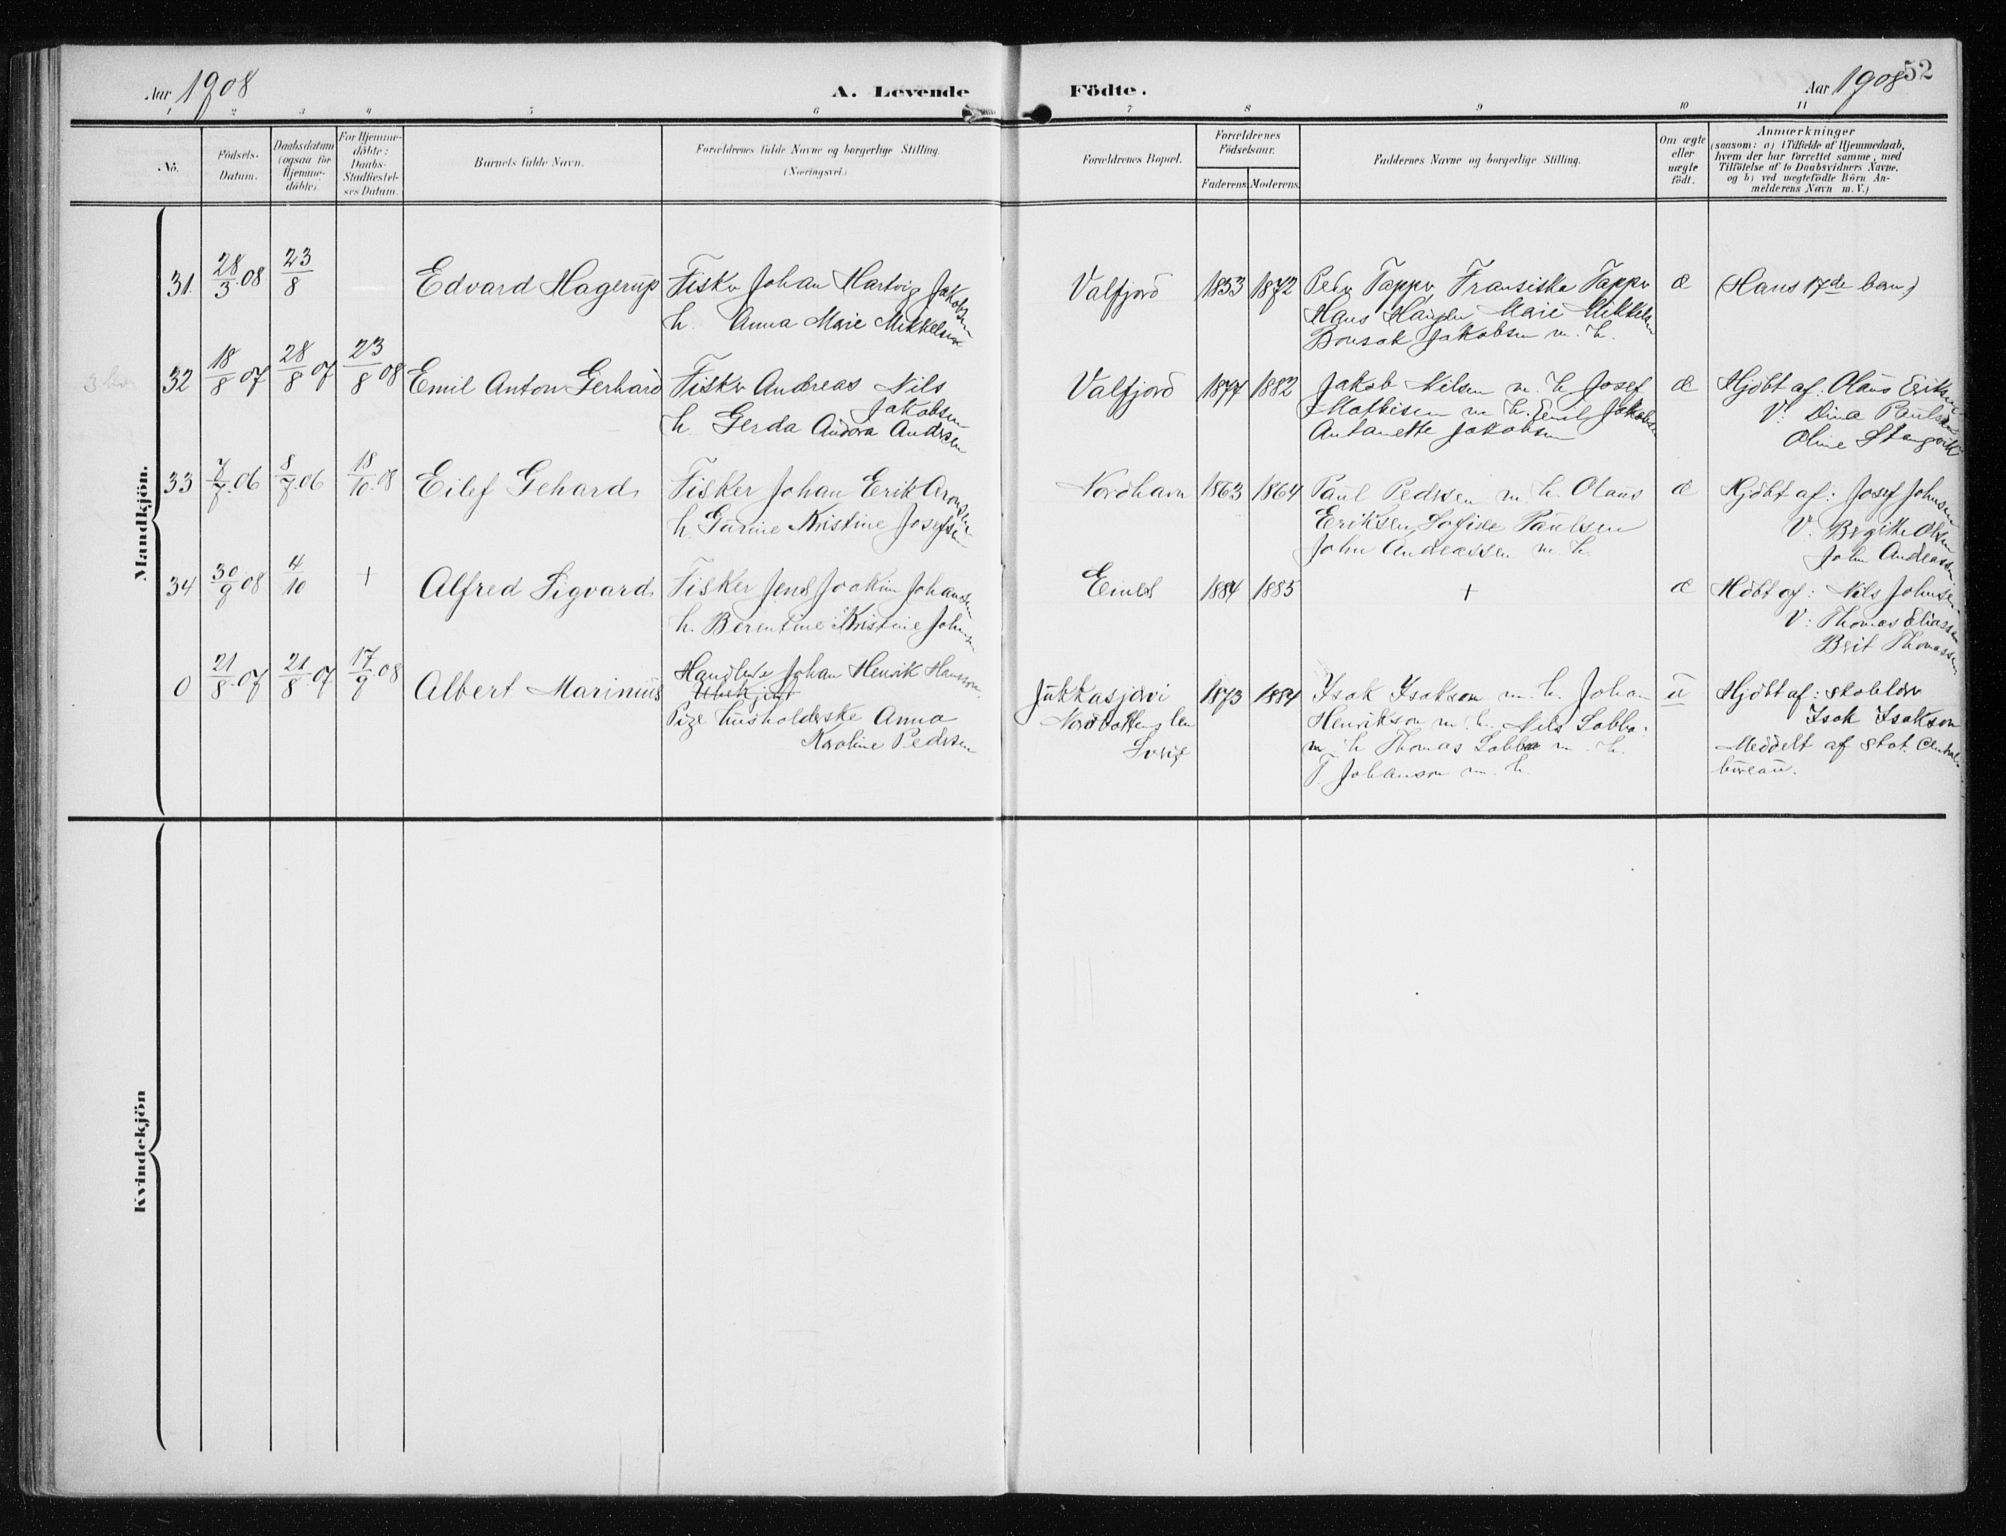 Aar 1908 A. Levende Födte. Aar 1908 52
1 2 3 4 5 6 7 8 9 10 11
No. Födsels-Datum. Daabsdatum (ogsaa for Hjemme-döbte). For Hjemme-döbte: Daabs-Stadfæstel-ses Datum. Barnets fulde Navn. Forældrenes fulde Navne og borgerlige Stilling. (Næringsvei.) Forældrenes Bopæl. Forældrenes Födselsaar. Faderens. Moderens. Faddernes Navne og borgerlige Stilling. Om ægte eller uægte födt. Anmærkninger
(saasom: a) i Tilfælde af Hjemmedaab,
hvem der har forrettet samme, med
Tilföielse af to Daabsvidners Navne,
og b) ved uægtefödte Börn An-
melderens Navn m. V.)
Mandkjön.
31. 28/3 08 23/8 Edvard Hagerup Fisker Johan Hartvig Jakobsen Valfjord 1853 1872 Peder Tapper, Fransiska Tapper æ (Hans 17de barn)
h. Anna Marie Mikkelsen Hans Hansen Marie Mikkelsen
Jakobsen m. h.
32 18/8 07 28/8 07 23/8 08 Emil Anton Gerhard Fisker Andreas Nils Valfjord 1877 1882 Jakob Nilsen m. h. Josef æ Hjdöbt af: Olaus Eriksen
Jakobsen Mathisen m h. Emil Jakobsen V: Dina Paulsen
h. Gerda Andora Andrsen Antonette Jakobsen Oline Stengvik
33 7/7 06 8/7 06 18/10 08 Eilef Gehard Fisker Johan Erik Aronsen Nordhavn 1863 1864 Paul Pedersen m. h. Olaus æ Hjdöbt af: Josef Johnsen
h. Garine Kristine Josefsen Eriksen, Sofie Paulsen V: Brgitte Olsen
John Andreassen m. h. John Andreassen
34 30/9 08 4/10 + Alfred Sigvard Fisker Jens Joakim Johansen 1884 1885 + æ Hdöbt af: Nils Johnsen
h. Berentine Kristine Johnsen V: Thomas Eliassen
Brit Thomassen
0 21/8 07 21/8 07 17/9 08 Albert Marinius Handlende Johan Henrik Hansson Jukkasjärvi 1873 1884 Isak Isakson m. h. Johan u Hjdöbt af: skolelærer
Ubekjent Norrbottens len Henrikson m. h. Nils Labba Isak Isakson
Pige husholderske Anna Sverige m h Thomas Labba m. h. Meddelt af Stat. Central-
Karoline Pedersen T Johanson m. h. bureau.
Kvindekjön